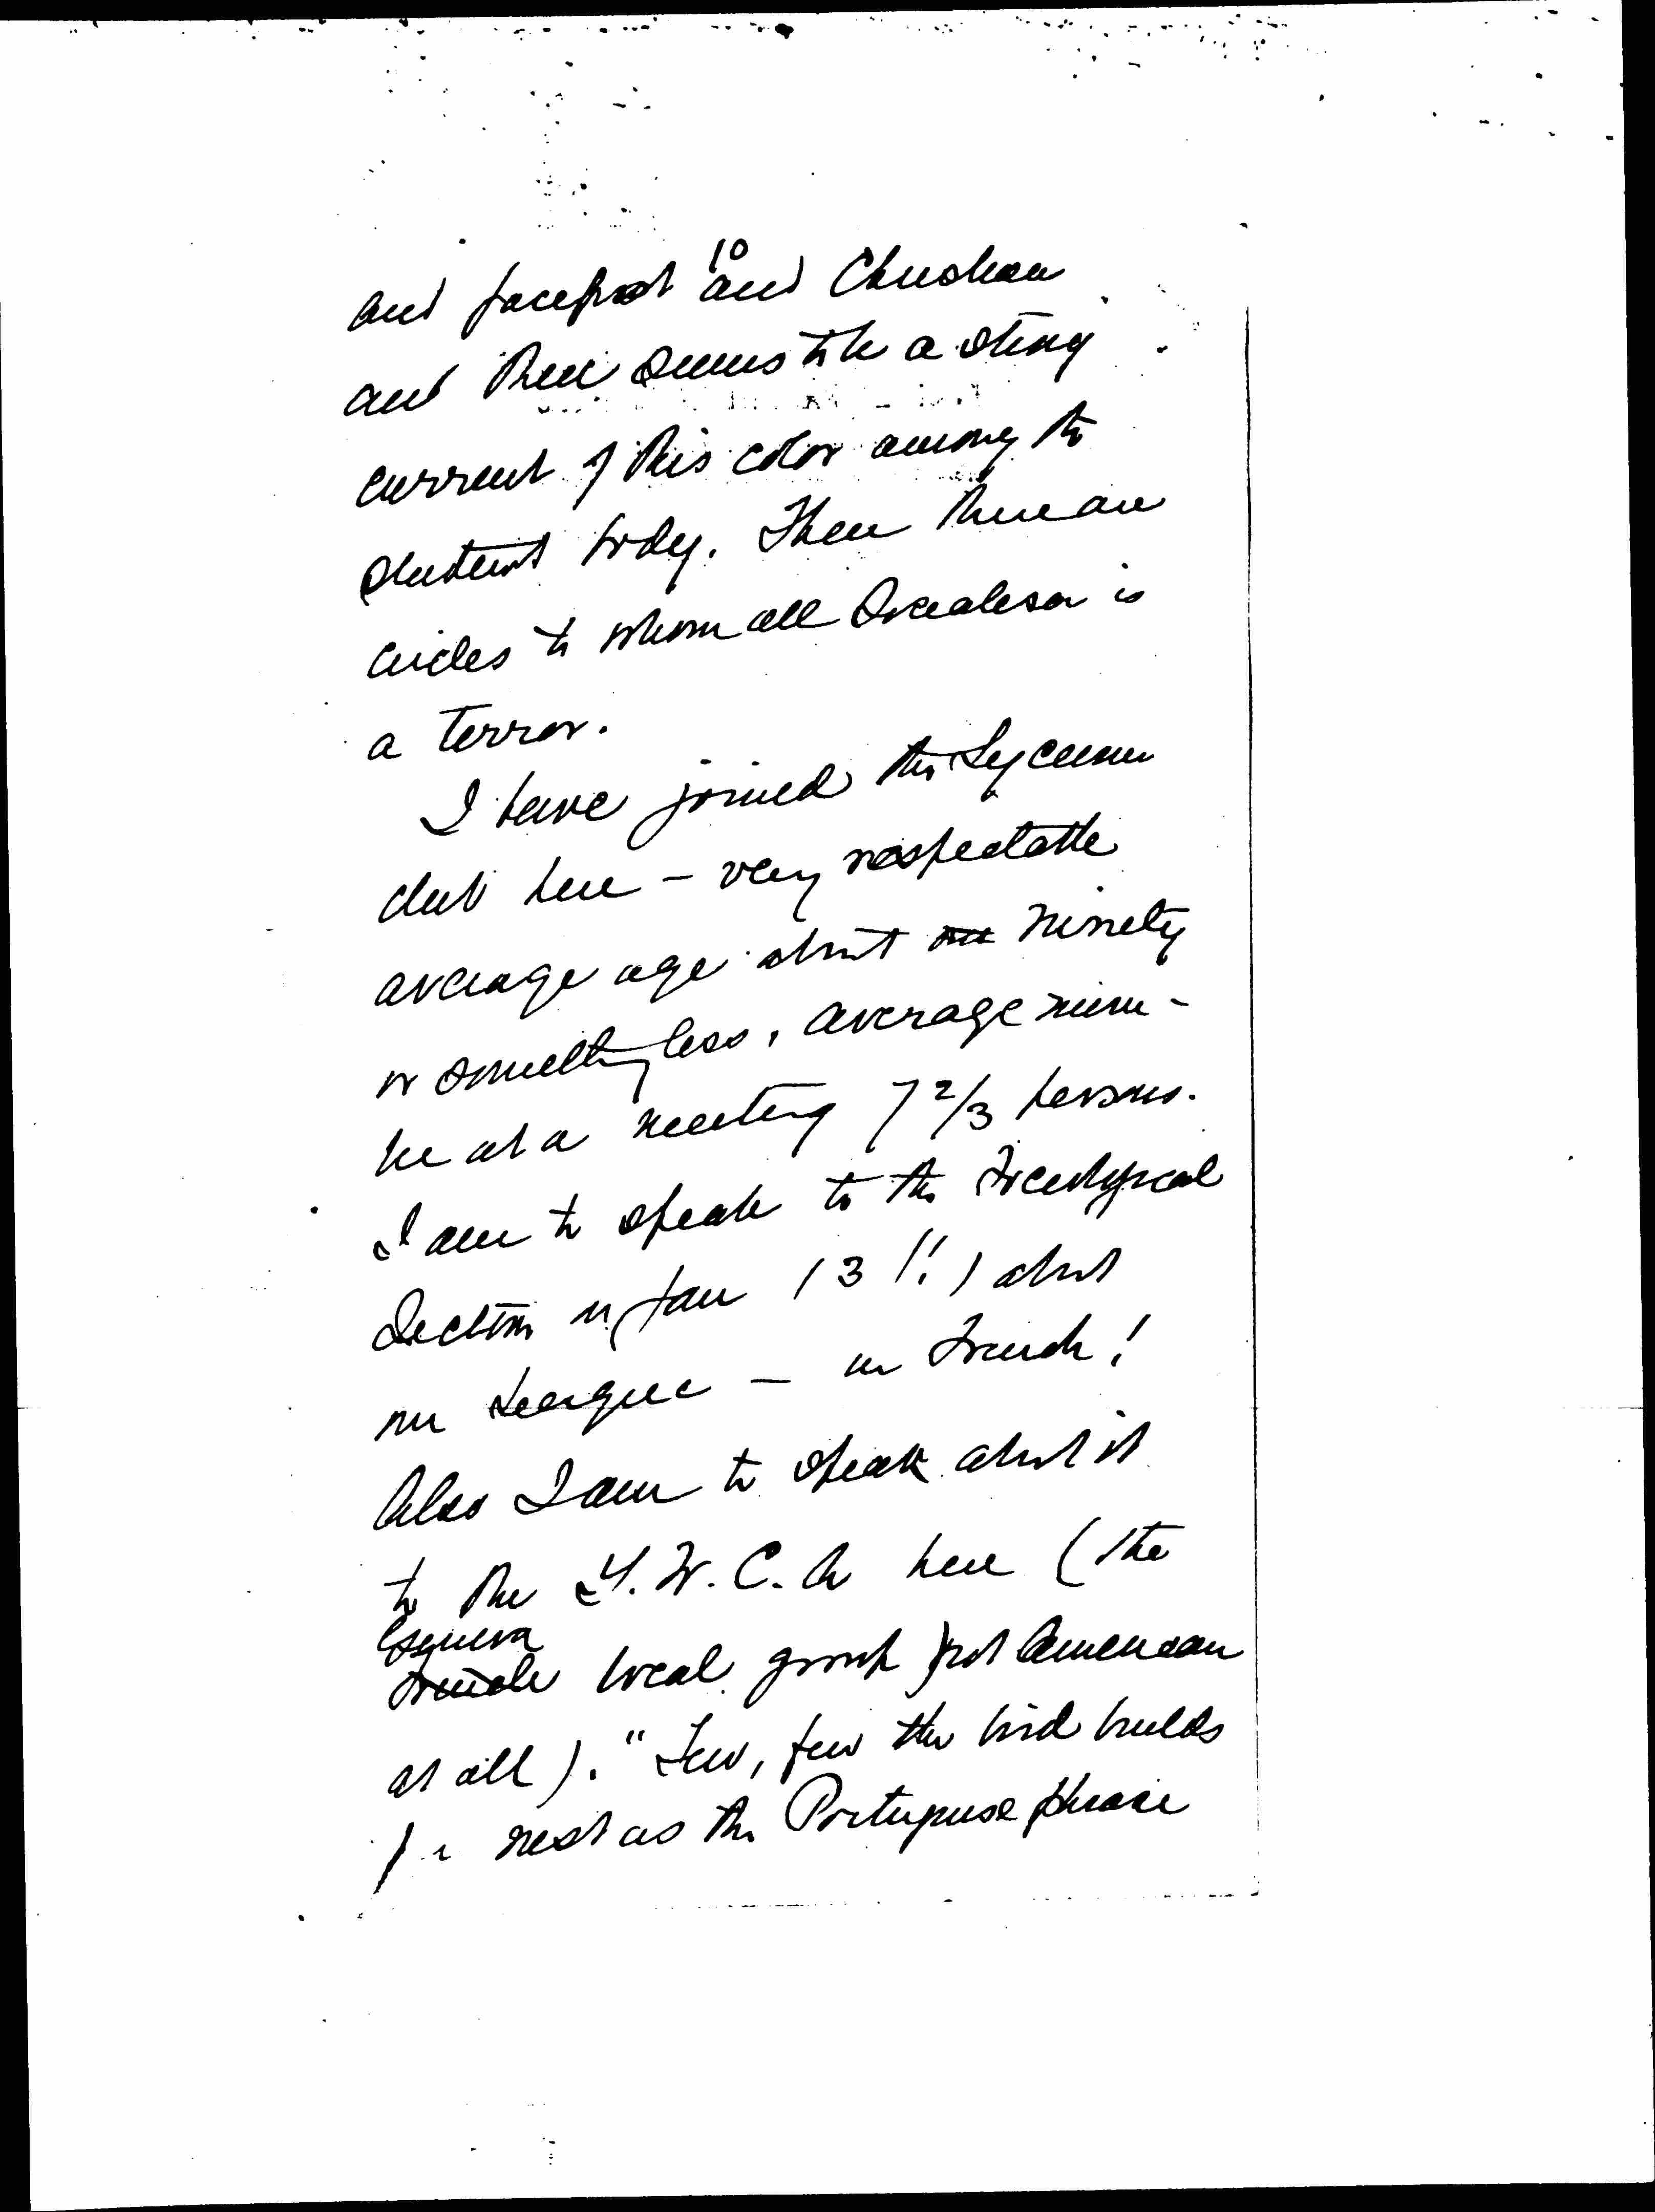 10
and pacifist and Christian
and there seems to be a strong
current of this color among the
student body. Then there are
circles to whom all Socialism is
a terror.
I have joined the Lyceum
club here – very respectable
average age about ninety
or something less, average num-
ber at a meeting 7 2/3 persons.
I am to speak to the
Section in Jan (3 !!) about
our League – in French!
Also I am to speak about it
to the Y.W.C.A here (the
Geneva
local group not American
at all). "Few, few the bird builds
nest as the Portuguese phrase